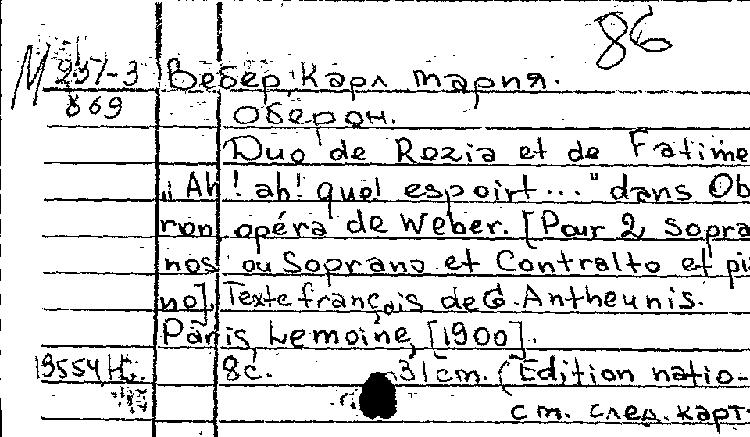 86
М 251-3 Вебер, Карл Мария.
869 Оберон.
Duo de Rozia et de Fatime
„Ah! ah! quel espoirt..." dans Ob
ron opéra de Weber. [Pour 2 sopra
nos ou Soprano et Contralto et pi
no]. Texte français de G. Antheunis.
Paris, Lemoine, [1900].
8с. 31 cm. (Edition natio-
см. след. карт